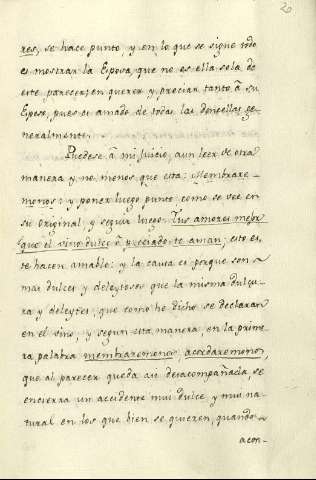 20
res, se hace punto, y en lo que se sigue todo
es mostrar la Esposa, que no es ella sola de
este parecer, en querer y preciar tanto â su
Esposo, pues es amado de todas las doncellas ge-
neralmente.
Puedese â mi juicio, aun leer de otra
manera y no menos que esta: Membrare-
monos; y poner luego punto como se ve en
su original, y seguir luego. Tus amores mejor
que el vino dulce â preciado te aman; esto es,
te hacen amable: y la causa es porque son
mas dulces y deleytosos que la misma dulzu-
ra y deleytes; que como he dicho se declaran
en el vino, y segun esta manera en la prime-
ra palabra membraremonos, acordaremonos,
que al parecer queda asi desacompañada, se
encierra un accidente mui dulce y mui na-
tural en los que bien se quieren, quando
acon-